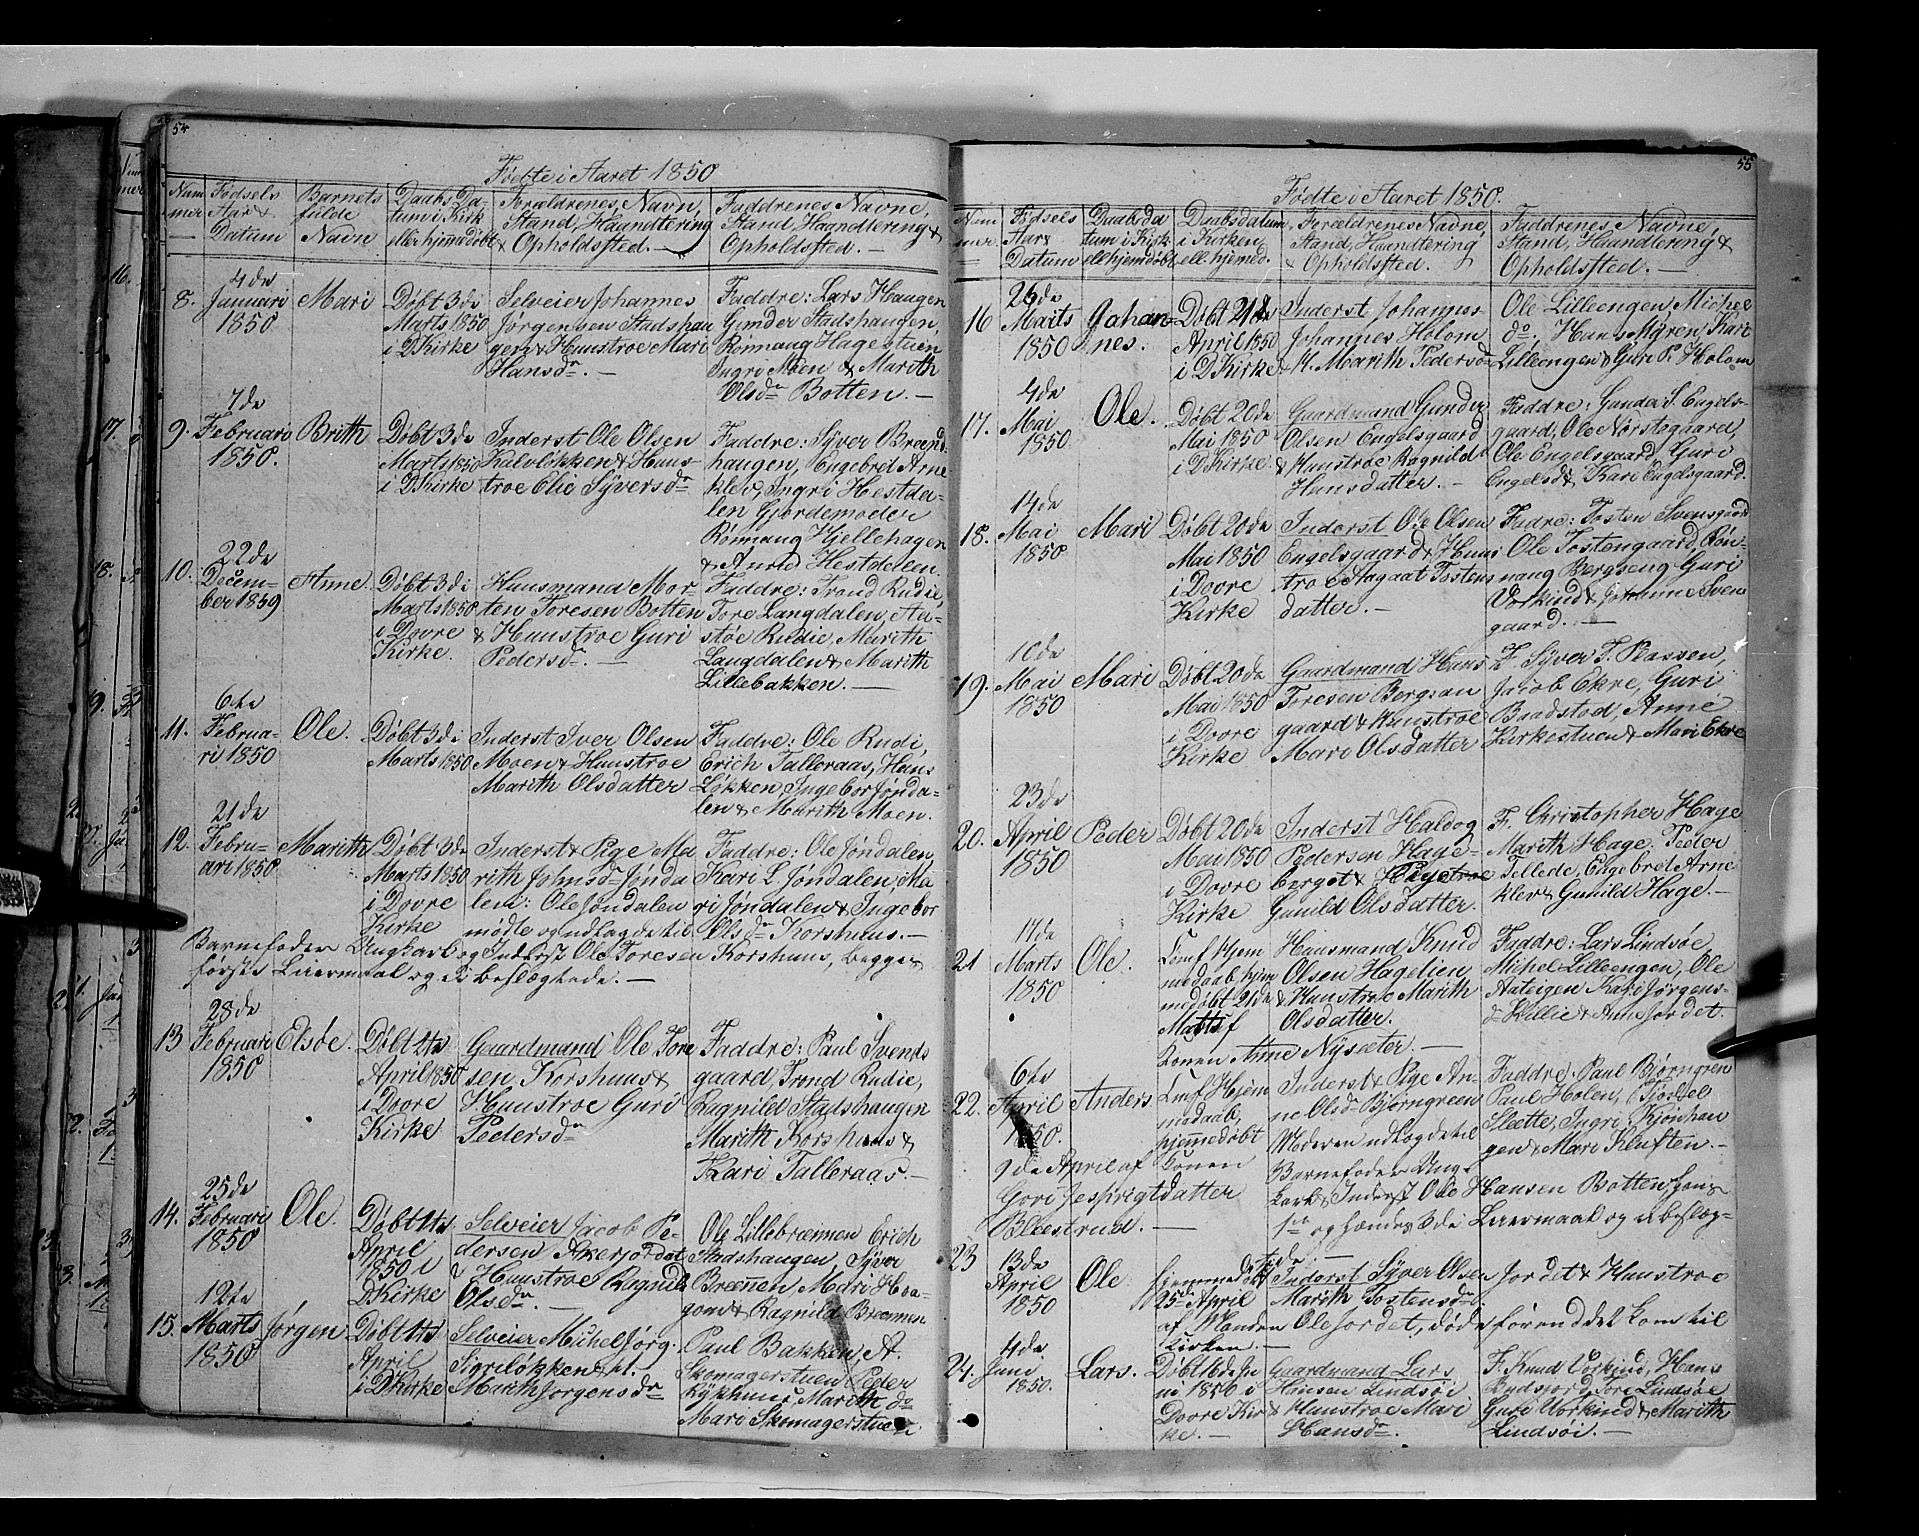 54
Fødte i Aaret 1850
Num
mer
Fødsels
Aar &
Datum
Barnets
fulde
Navn
Daabs Da-
tum i Kirk
eller hjemmedøbt
Forældrenes Navn,
Stand, Haandtering
& Opholdssted. —
Faddrenes Navne,
Stand, Haandtering &
Opholdssted. —
8.
4de
Januari
1850
Mari
Døbt 3de
Marts 1850
i D Kirke
Selveier Johannes
Jørgensen Stadshau
gen & Huustroe Mari
Hansdr. —
Faddre: Lars Haugen
Gunder Stadshaugen,
Rønnaug Hagestuen
Ingri Moen & Marith
Olsdr Botten. —
9.
7de
Februari
1850.
Brith
Døbt 3de
Marts 1850
i D Kirke
Inderst Ole Olsen
Kalvløkken & Huus-
troe Elie Syversdr
Faddre: Syver Brænd-
haugen, Engebret Arne-
klev, Ingri Hestda-
len Gjordemoder
Rønnaug Hjellehagen
& Anne Hestdalen.
10.
22de
Decem-
ber 1859
Anne.
Døbt 3de
Marts 1850
i Dovre
Kirke.
Huusmand Mor-
ten Toresen Botten
& Huustroe Guri
Pedersdr. —
Faddre: Trond Rudie,
Tore Langdalen, Aa-
støe Rudie, Marith
Langdalen & Marith
Lillebakken. —
11.
6te
Februa-
ri 1850
Ole.
Døbt 3de
Marts 1850
Inderst Iver Olsen
Moen & Huustroe
Marith Olsdatter
Faddre: Ole Rudi,
Erich Talleraas, Hans
Løkken Ingebor Jønda-
len & Marith Moen.
12.
21de
Febru-
ari 1850
Marith
Døbt 3de
Marts 1850
i Dovre
Kirke
Inderst & Pige Ma
rith Johnsdr Jønda
len: Ole Jøndalen
mødte og udlagde til
Faddre: Ole Jøndalen,
Kari L Jøndalen, Ma
ri Jøndalen & Ingebor
Olsdr Korshuus. —
Barnefader Ungkarl og Inderst Ole Toresen Korshuus, begges
første Leiermaal og ei beslægtede. —
13
28de
Februari
1850
Elsøe.
Døbt 1te
April 1850
i Dovre
Kirke
Gaardmand Ole Tore
sen, Korshuus &
Huustroe Guri
Pedersdr
Faddre: Paul Svends
gaard, Trond Rudie,
Ragnild Stadshaugen
Marith Korshuus &
Kari Talleraas. —
14.
25de
Februari
1850
Ole.
Døbt 1te
April
1850 i
D Kirke
Selveier Jacob Pe-
dersen Akerjordet
& Huustroe Ragnild
Olsdr. —
Ole Lillebrænnen Erich
Stadshaugen, Syver
Brænnen, Mari Haa-
gaar & Ragnild Brænnen
15.
12te
Marts
1850
Jørgen
Døbt 1te
April
i D Kirke
Selveier Michel Jørg.
Sigriløkken & H.
Marith Jørgensdr
Paul Bakken, A.
Skomagerstuen Peder
Rykhuus, Marith do
Mari Skomagerstuen
55
Fødte i Aaret 1850.
Num
mer.
Fødsels
Aar &
Datum
Daabsda
tum i Kirk
ell hjemdøbt
Daabsdatum
i Kirken
ell. hjemed.
Forældrenes Navne,
Stand, Haandtering
& Opholdssted.
Faddrenes Navne,
Stand, Haandtering &
Opholdssted. —
16
26de
Marts
1850
Johan-
nes.
Døbt 21de
April 1850
i D Kirke
Inderst Johannes
Johannes Holom
& H. Marith Pedersdr
Ole Lilleengen, Michel
do. Hans Myren, Kari
Lilleengen & Guri P. Holom
17.
4de
Mai
1850.
Ole.
Døbt 20de
Mai 1850
i D Kirke
Gaardmand Gunder
Olsen Engelsgaard
& Huustroe Ragnild
Hansdatter. —
Faddre: Gunder S. Engels-
gaard, Ole Nørstegaard,
Ole Engelsgaard, Guri
Engelsd & Kari Engelsgaard.
18.
14de
Mai
1850
Mari
Døbt 20de
Mai 1850
i Dovre
Kirke
Inderst Ole Olsen
Engelsgaard & Huus
troe Aagaat Tostens
datter. —
Fadre: Tosten Svensgaard
Ole Tostengaard, Røn
naug Bergseng Guri
Vorkind & Johanne Sven
gaard. —
19.
10de
Mai
1850
Mari
Døbt 20de
Mai 1850
i Dovre
Kirke
Gaardmand Hans
Toresen Bergsen
gaard & Huustroe
Mari Olsdatter
F. Syver T. Plassen,
Jacob Ekre, Guri
Baadstad, Anne
Kirkestuen & Mari Ekre
20.
23de
April
1850
Peder
Døbt 20de
Mai 1850
i Dovre
Kirke
Inderst Haldog
Pedersen Hage-
berget &
Gunild Olsdatter.
F. Christopher Hage
Marith Hage, Peder
Tellede, Engebret Arne
kler & Gunild Hage. —
21
17de
Marts
1850
Ole.
Conf Hjem
medaab hjem
medøbt 21de
Marts af
Konen Anne Nysæter. —
Huusmand Knud
Olsen Hagelien
& Huustroe Marith
Olsdatter.
Faddre: Lars Lindsøe
Michel Lilleengen, Ole
Aateigen Kari Jørgens-
dr Lillie & Anne Jordet.
22.
6te
April
1850.
Anders
Conf Hjem
medaab,
hjemmedøbt
9de April af Konen
Gori Jesprigtdatter
Bleestrud. —
Inderst & Pige An-
ne Olsdr Bjørngreen
Moderen udlagde til
Barnefader Ung-
karl & Inderst Ole Hansen Botten, hans
1ste og hendes 3de Leiermaal og ei beslæg-
tede —
Faddre: Paul Bjørngren
Paul Holen, Tjostel
Slette, Ingri Kjønhau
gen & Mari Kluften. —
23
13de
April
1850
Ole
hjemmedøbt
25de April
af Manden Ole Jordet, døde førend det kom til
Kirken. —
Inderst Syver Olsen Jordet & Huustroe
Marith Tostensdr.
24.
4de
Juni
1850.
Lars.
Døbt 16de Ju
ni 1850 i
Dovre Kir
ke. —
Gaardmand Lars
Hansen Lindsøi
& Huustroe Mari
Hansdr.
F. Knud Vorkind, Hans
Budsjord, Tore Lindsøe
Guri Vorkind & Marith
Lindsøi. —